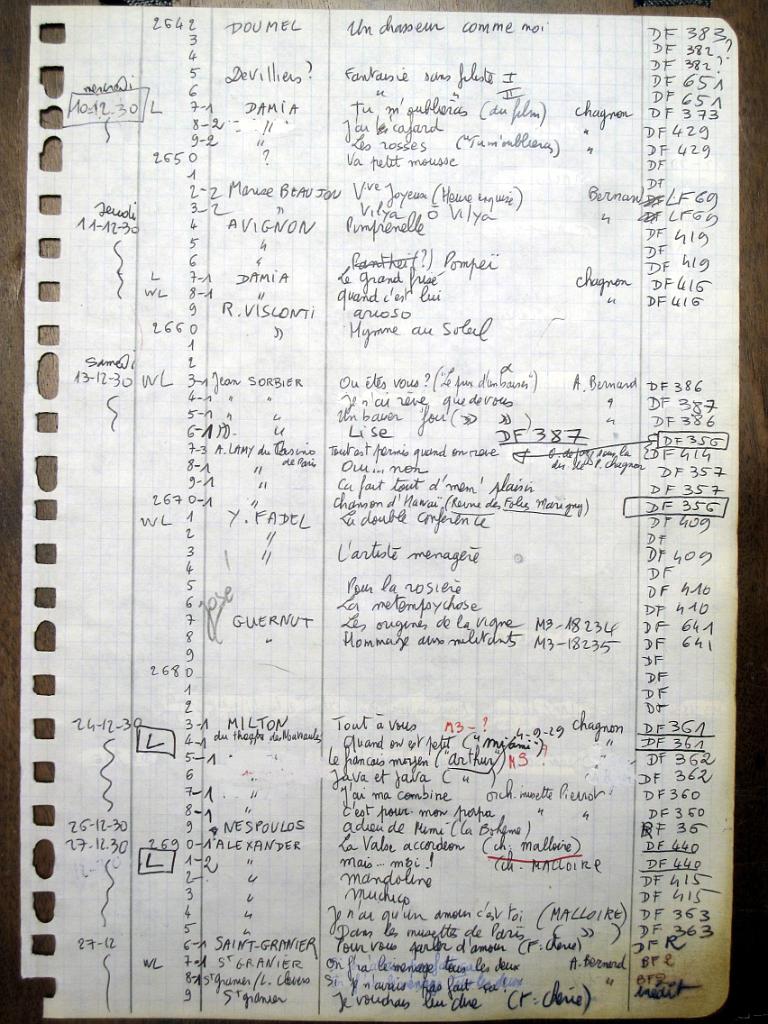 2642 DOUMEL Un chasseur comme moi DF 383
3 DF 382?
4 DF 382?
5 Devilliers? Fantaisie sans filets I DF 651
6 " " II DF 651
mercredi
10-12-30 L 7-1 DAMIA Tu m'oublieras (du film) chagnon DF 373
8-2 " J'ai le cafard " DF 429
9-2 " Les rosses ("Tu m'oublieras) " DF 429
2650 ? Va petit mousse DF
1 DF
2-2 Maruse BEAUJON Vve Joyeuse (Heure exquise) Bernard LF 69
Jeudi
11-12-30 3-2 " Vilya ô Vilya " LF 69
4 AVIGNON Pimprenelle DF 419
5 "
6 " (?) Pompeï DF 419
L 7-1 DAMIA Le grand frisé chagnon DF 416
WL 8-1 " quand c'est lui " DF 416
9 R. VISCONTI arioso
2660 " Hymne au Soleil
1
Samedi
2
13-12-30 WL 3-1 Jean SORBIER Ou êtes vous? ("Le prix d'un baiser") A. Bernard DF 386
4-1 " " Je n'ai rêvé que de vous " DF 387
5-1 " " Un baiser pour (" ") " DF 386
6-1 " " Lise DF 387 DF 356
7-3 A. LAMY du Casino de Paris Tout est permis quand on reve DF 414
8-1 " Oui... non DF 357
9-1 " Ca fait tout d'mem' plaisir DF 357
2670-1 " Chanson d'Hawaï (Revue des Folies Marigny) DF 356
WL 1 Y. FADEL La double conférence DF 409
2 " DF
3 " L'artiste menagère DF 409
4 DF
5 Pour la rosière DF 410
6 José La metempsychose DF 410
7 GUERNUT Les origines de la vigne M3-18234 DF 641
8 " Hommage aux militants M3-18235 DF 641
9 DF
2680 DF
1 DF
2 DF
24-12-30 3-1 MILTON Tout à vous M3-? chagnon DF 361
L 4-1 du theatre des Nouveautés Quand on est petit ("miami") 4-9-29 " DF 361
5-1 " le francais moyen ("arthur") M3? " DF 362
6 " Java et Java ( " ) " DF 362
7-1 " j'ai ma combine orch. musette Pierrot DF 360
8-1 " c'est pour mon papa " " DF 360
26-12-30 9 NESPOULOS adieu de Mimi (la Bohème) RF 36
27-12.30 2690-1 ALEXANDER La Valse accordeon (ch. Malloire) DF 440
L 1-2 " mais... moi! (ch. MALLOIRE DF 440
2 " Mandoline DF 415
3 " Muchico DF 415
4 " Je n'ai qu'un amour c'est toi (MALLOIRE) DF 363
5 " Dans les musettes de Paris ( " ) DF 363
27-12 6-1 SAINT-GRANIER Pour vous parler d'amour DF R
WL 7-1 St GRANIER On fra le menage tous les deux A. Bernard BF 2
8-1 St granier/L. Si je n'avais pas fait ça! " BF 2
9 St granier Je voudrais inédit